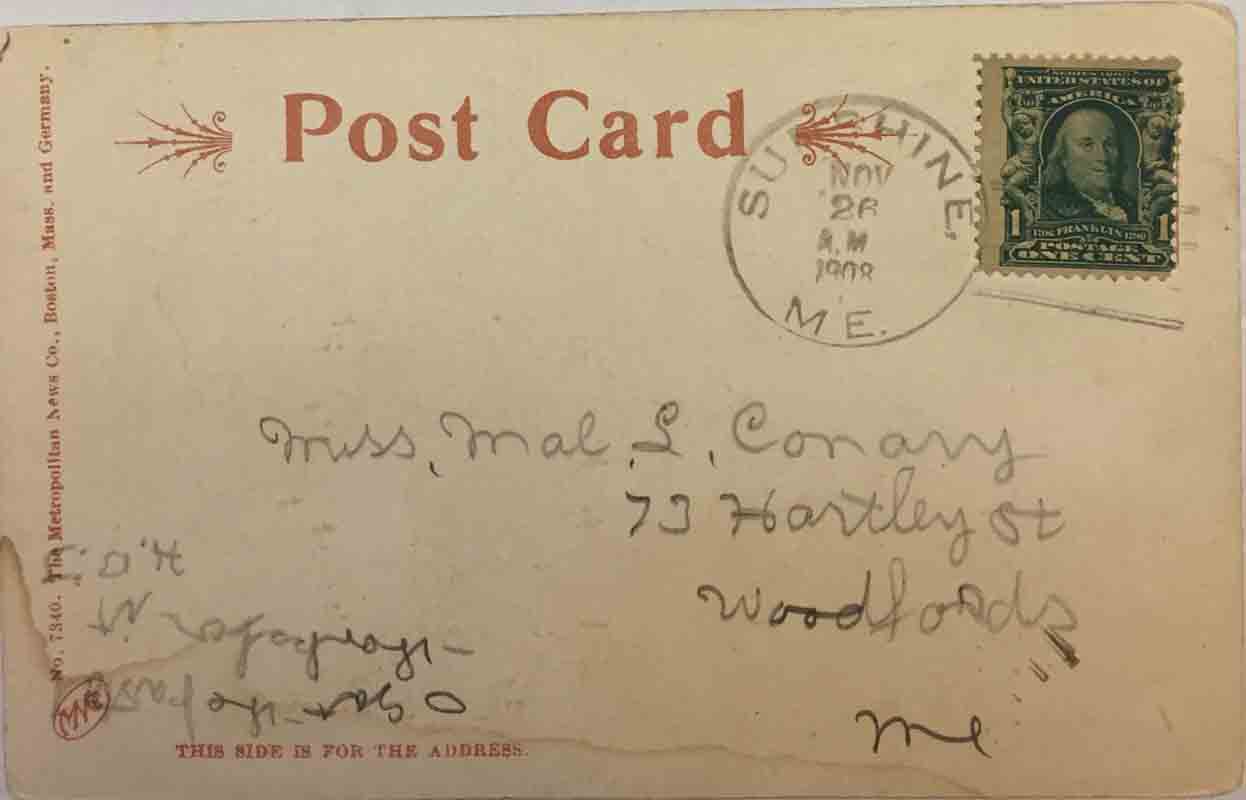 Post Card
SUNSHINE,
NOV
26
A.M
1908
ME.
SERIES 1902
UNITED STATES OF
AMERICA
1 1706 FRANKLIN 1790 1
POSTAGE
ONE CENT
Miss, Mal. L. Conary
73 Hartley St
Woodfords
Me
No. 7340. The Metropolitan News Co., Boston, Mass. and Germany.
THIS SIDE IS FOR THE ADDRESS.
I Got the
thanks for it